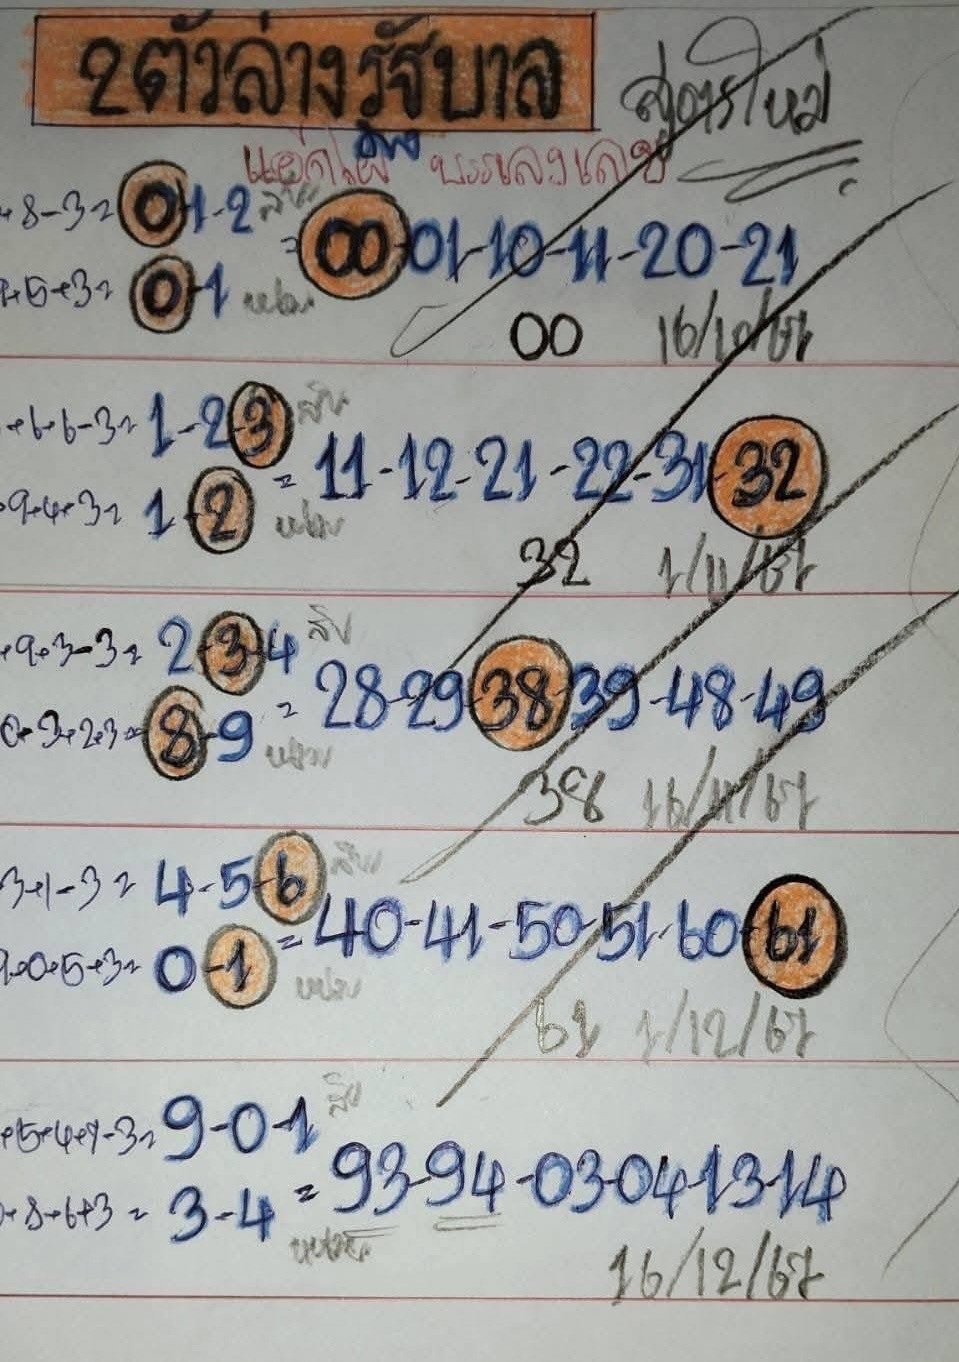 2ตัวล่างรัฐบาล สูตรใหม่
บรรเลงเลข
8-3= 0-1-2 สิบ
= 00-01-10-11-20-21
5+3= 0-1 หน่วย
00 16/10/67
+6+6-3= 1-2-3 สิบ
= 11-12-21-22-31-32
9+4+3= 1-2 หน่วย
32 1/11/67
+9+3-3= 2-3-4 สิบ
= 28-29-38-39-48-49
8-9 หน่วย
38 16/11/67
3+1-3= 4-5-6 สิบ
= 40-41-50-51-60-61
9+0+5+3= 0-1 หน่วย
61 1/12/67
+5+4+1-3= 9-0-1 สิบ
= 93-94-03-04-13-14
+8+6+3= 3-4 หน่วย
16/12/67